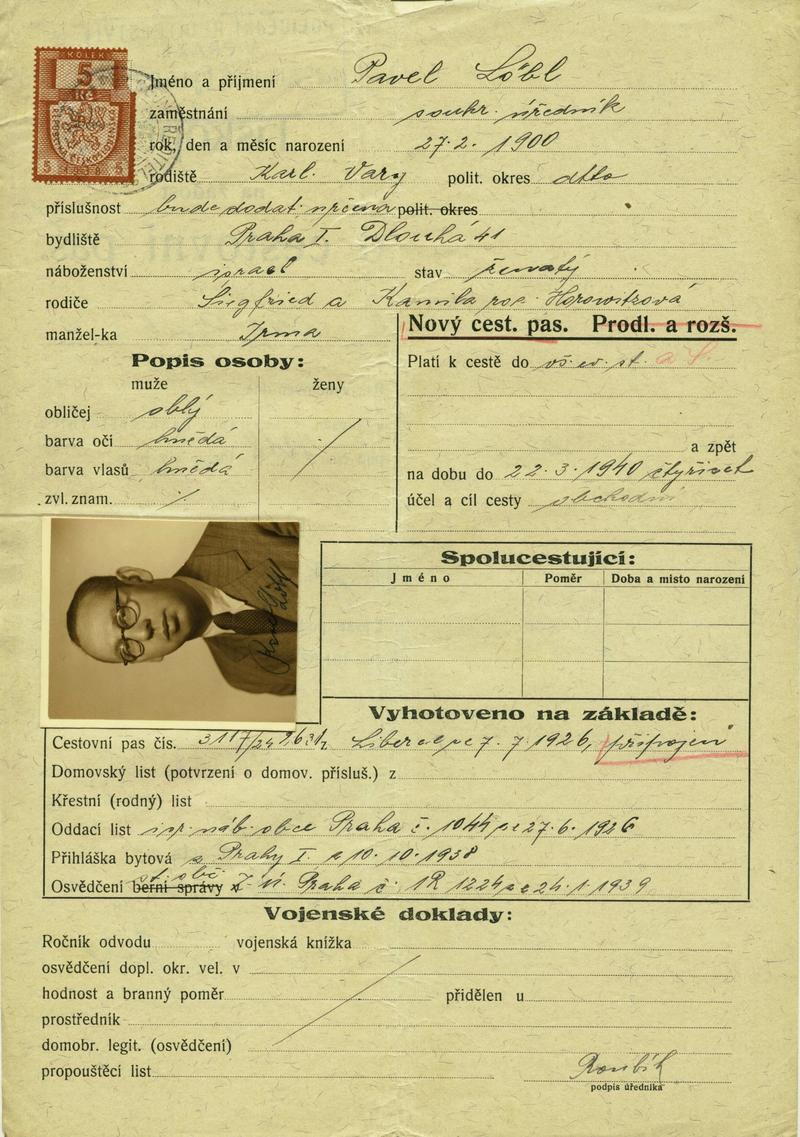 KOLEK
5
Kč
REPUBLIKA ČESKOSLOVENSKÁ
5 1938 5
Jméno a příjmení Pavel Löbl
zaměstnání soukr. úředník
rok, den a měsíc narození 27. 2. 1900
rodiště Karl. Vary polit. okres dtto
příslušnost bude dodat. určena polit. okres
bydliště Praha I. Dlouhá 41
náboženství israel stav ženatý
rodiče Siegfried a Kamila roz. Horowitzová
manžel-ka Irma
Nový cest. pas. Prodl. a rozš.
Popis osoby:
muže ženy
obličej oblý
barva očí hnědá
barva vlasů hnědá
zvl. znam. %
Platí k cestě do vš. ev. st.
a zpět
na dobu do 22. 3. 1940 čtyřicet
účel a cíl cesty obchodní
Pavel Löbl
Spolucestující:
Jméno Poměr Doba a místo narození
Vyhotoveno na základě:
Cestovní pas čís. 3117/24 Liberec ze 7. 7. 1926, "připojen"
Domovský list (potvrzení o domov. přísluš.) z
Křestní (rodný) list
Oddací list isr. náb. obce Praha č. 1044 ze 27. 6. 1926
Přihláška bytová z Prahy I. z 10. 10. 1938
st. obč.
Osvědčení berní správy z Z. ú. Praha č. 1R 1224 ze 24. 1. 1939
Vojenské doklady:
Ročník odvodu vojenská knížka
osvědčení dopl. okr. vel. v
hodnost a branný poměr přidělen u
prostředník
domobr. legit. (osvědčení)
propouštěcí list
Roubík
podpis úředníka